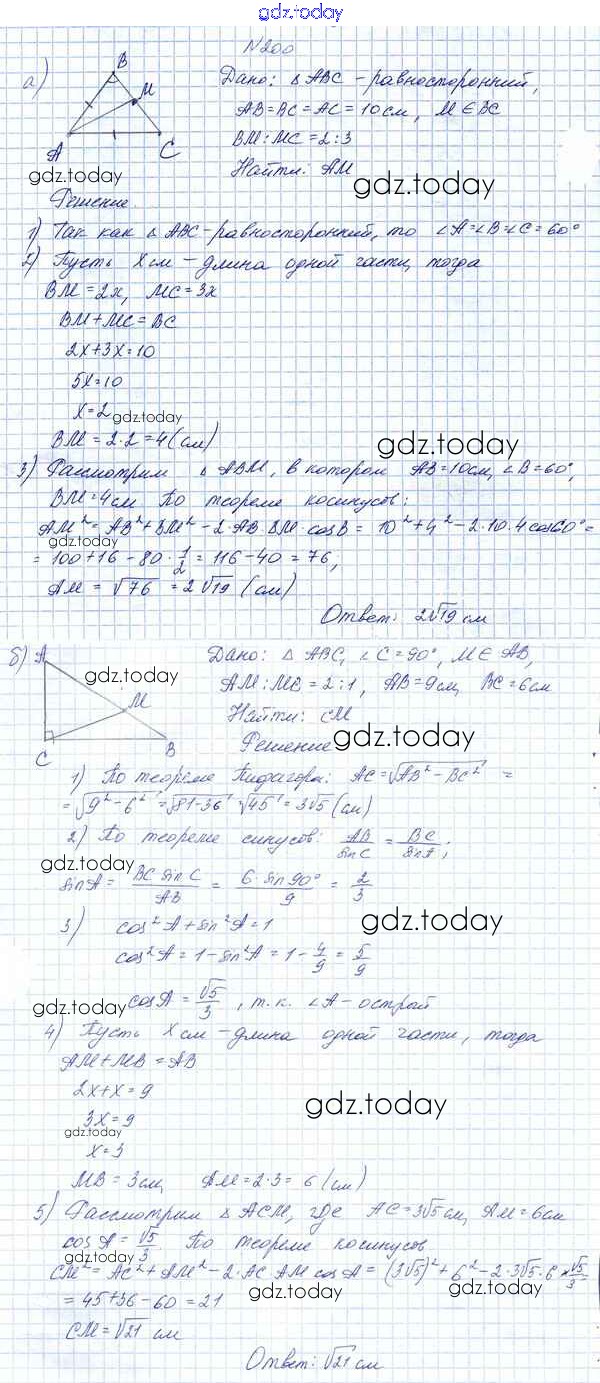 gdz.today
№200
а) B M A C
Дано: △ABC - равносторонний,
AB=BC=AC=10см, M∈BC
BM:MC=2:3
Найти: AM
gdz.today
gdz.today
Решение
1) Так как △ABC-равносторонний, то ∠A=∠B=∠C=60°
2) Пусть Xсм - длина одной части, тогда
BM=2x, MC=3x
BM+MC=BC
2x+3x=10
5x=10
x=2 gdz.today
BM=2·2=4(см)
gdz.today
3) Рассмотрим △ABM, в котором AB=10см, ∠B=60°,
BM=4см По теореме косинусов:
AM²=AB²+BM²-2·AB·BM·cosB=10²+4²-2·10·4cos60°=
gdz.today
=100+16-80·1/2=116-40=76,
AM=√76=2√19 (см)
Ответ: 2√19 см
б) A M C B
Дано: △ABC, ∠C=90°, M∈AB,
gdz.today
AM:MB=2:1, AB=9см, BC=6см
Найти: CM
Решение gdz.today
1) По теореме Пифагора: AC=√AB²-BC² =
=√9²-6²=√81-36 √45=3√5(см)
2) По теореме синусов: AB/sinC=BC/sinA;
gdz.today
sinA=BC sinC/AB=6·sin90°/9=2/3
3) cos²A+sin²A=1
gdz.today
cos²A=1-sin²A=1-4/9=5/9
gdz.today cosA=√5/3, т.к. ∠A-острый
4) Пусть Xсм-длина одной части, тогда
AM+MB=AB
2x+x=9
gdz.today
3x=9
gdz.today
x=3
MB=3см, AM=2·3=6(см)
5) Рассмотрим △ACM, где AC=3√5см, AM=6см
cosA=√5/3. По теореме косинусов
gdz.today
CM²=AC²+AM²-2·AC AM cosA=(3√5)²+6²-2·3√5·6×√5/3
gdz.today gdz.today
=45+36-60=21
CM=√21 см
Ответ: √21 см